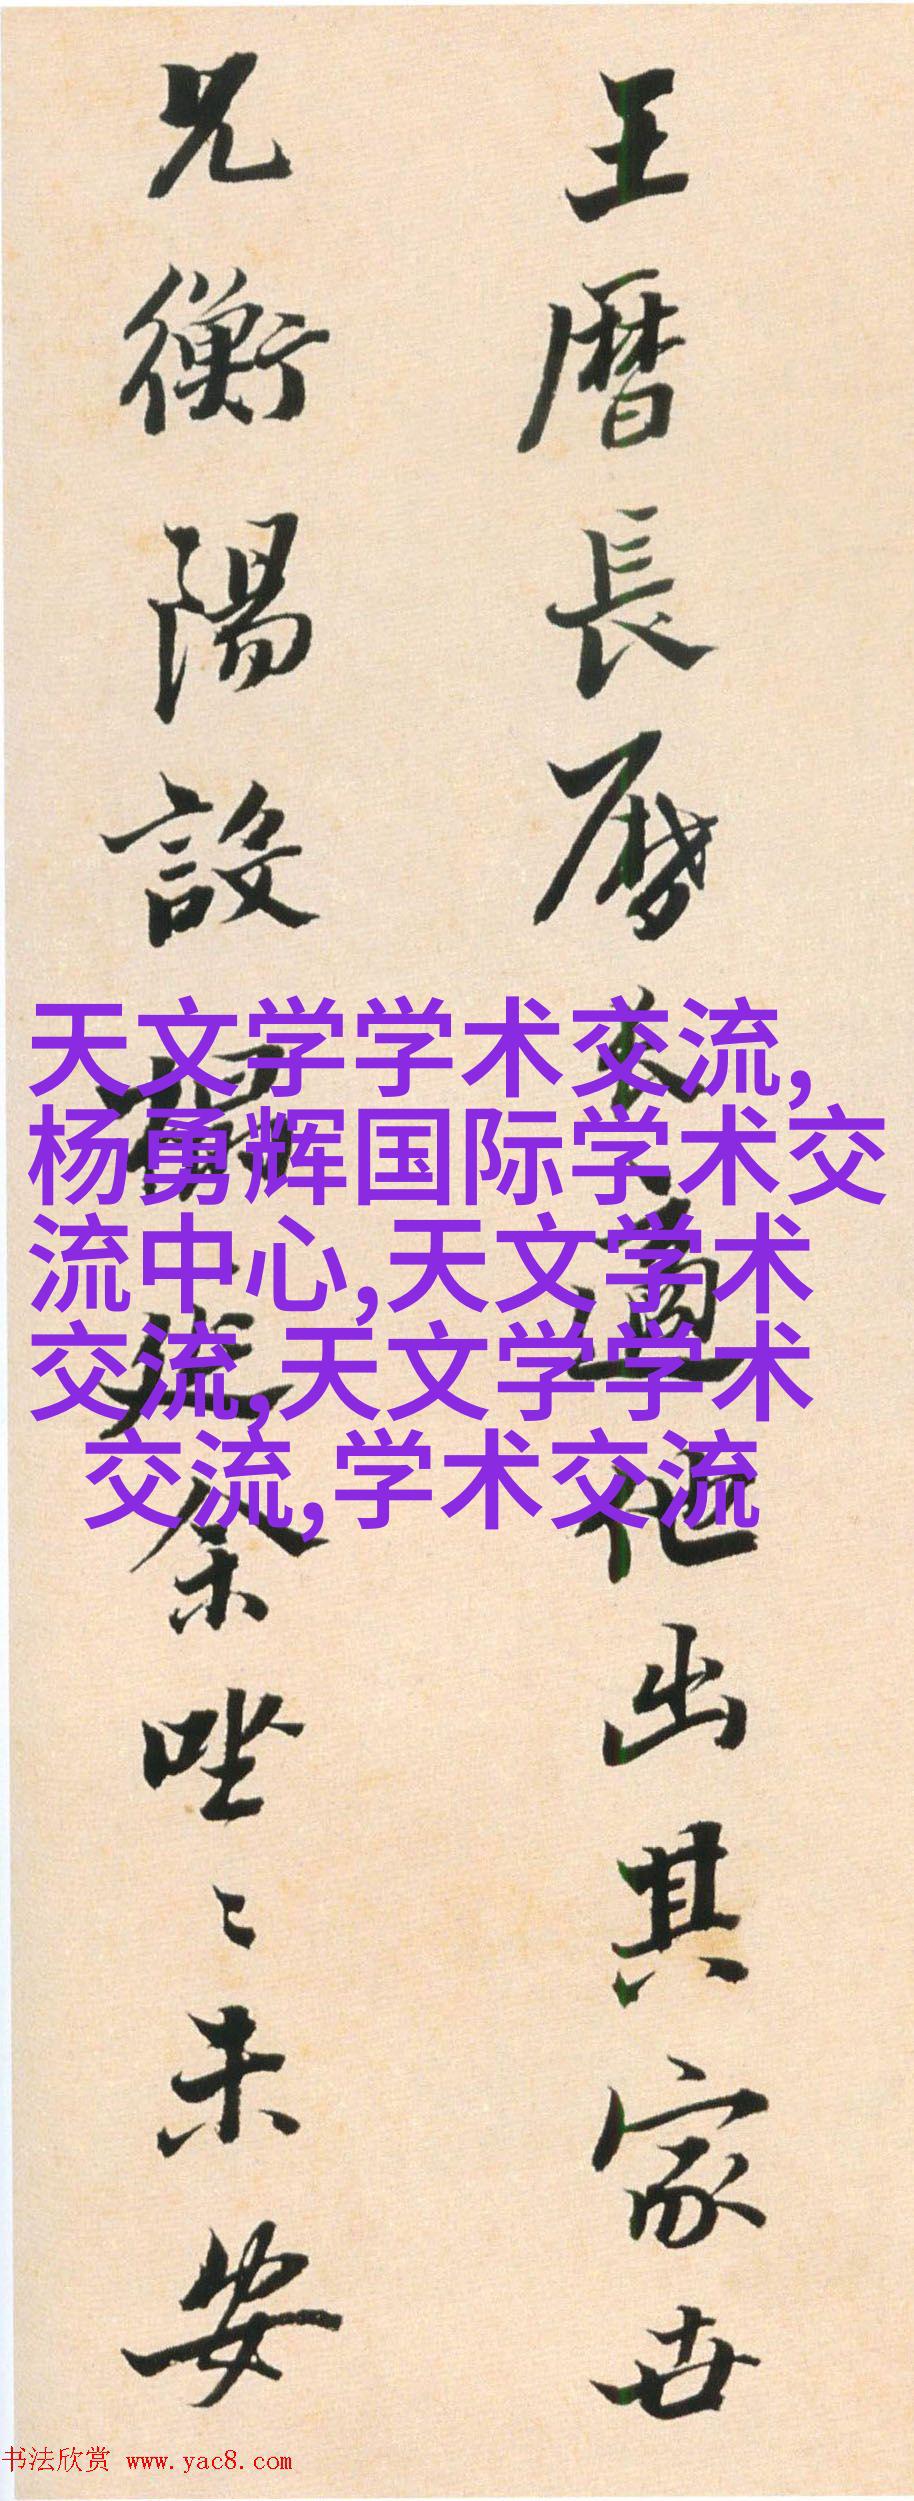 王曆長歷
適他出其家世
兄衡陽設
坐祭唑〻未安
天文学学术交流,
杨勇辉国际学术交
流中心,天文学术
交流,天文学学术
交流,学术交流
书法欣赏 www.yac8.com